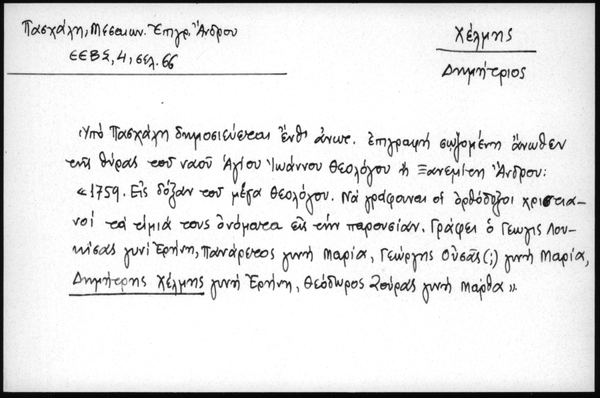 Πασχάλη, Μεσαιων. Ἐπιγρ. Ἄνδρου
ΕΕΒΣ, 4, σελ. 66
Χέλμης
Δημήτριος
Ὑπὸ Πασχάλη δημοσιεύεται ἔνθ' ἀνωτ. ἐπιγραφὴ σῳζομένη ἄνωθεν
τῆς θύρας τοῦ ναοῦ Ἁγίου Ἰωάννου Θεολόγου ἐν Ξανεμίτῃ Ἄνδρου:
« 1759. Εἰς δόξαν τοῦ μέγα Θεολόγου. Νὰ γράφουνται οἱ ὀρθόδοξοι χριστια-
νοὶ τὰ τίμιά τους ὀνόματα εἰς τὴν παρουσίαν. Γράφει ὁ Γεωγις Λου-
κησας γυνὶ Ἐρήνη, Πανάρετος γυνὴ Μαρία, Γεώργης Οὐσᾶς (;) γυνὴ Μαρία,
Δημήτρης Χέλμης γυνὴ Ἐρήνη, Θεόδωρος Ζούρας γυνὴ Μάρθα ».